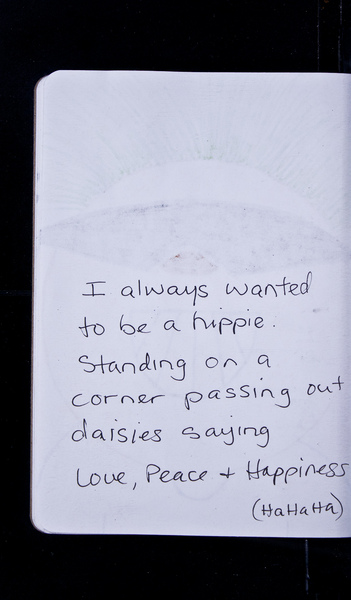 I always wanted
to be a hippie.
Standing on a
corner passing out
daisies saying
Love, Peace + Happiness
(HaHaHa)